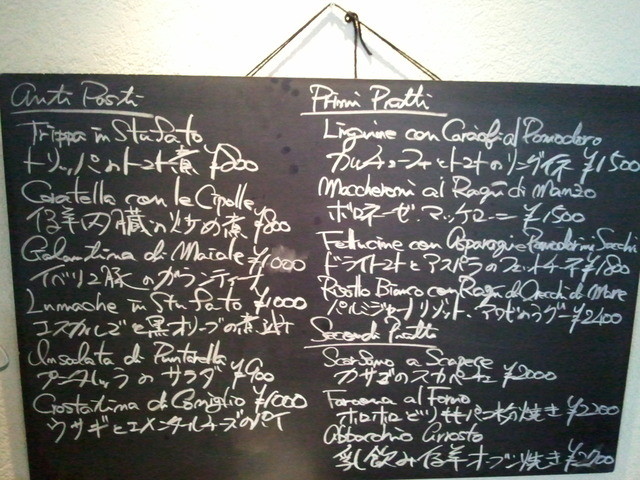 Anti Pasti
Trippa in Stufato
トリッパのトマト煮 ¥800
Coratella con le Cipolle
仔羊内臓の炒め煮 ¥800
Galantina di Maiale ¥1000
イベリコ豚のガランティーナ
Lumache in Stufato ¥1000
エスカルゴと黒オリーブの煮込み
Insalata di Puntarella
のサラダ ¥900
Crostatina di Coniglio ¥1000
ウサギとエメンタールチーズのパイ
Primi Piatti
Linguine con Carciofi al Pomodoro
カルチョーフィとトマトのリングイネ ¥1500
Maccheroni ai Ragù di Manzo
ボロネーゼ マッケローニ ¥1500
Fettucine con Asparagi e Pomodorini Secchi
ドライトマトとアスパラのフェットチーネ ¥1800
Risotto Bianco con Ragù di Orecchi di Mare
リゾット アワビのラグー ¥2400
Secondi Piatti
a Scapece
カサゴのスカペーチェ ¥2000
Faraona al Forno
ホロホロどり 香草パン粉焼き ¥2200
Abbacchio Arrosto
乳飲み仔羊オーブン焼き ¥2700